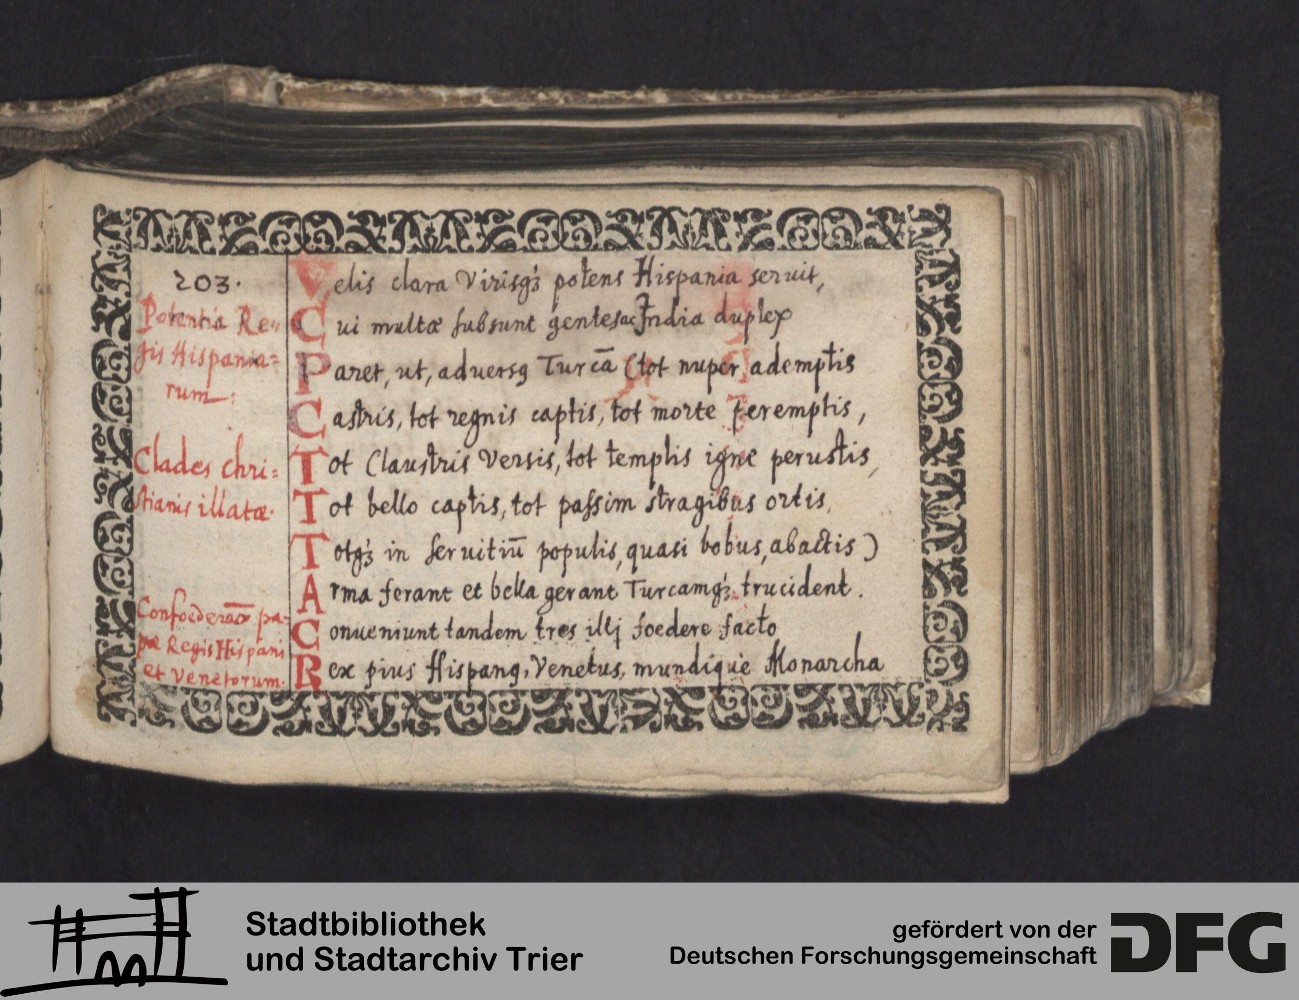 203.
Potentia Re=
gis Hispania=
rum:
Clades chri=
stianis illatæ.
Confoederaō pa=
pæ Regis Hispani
et Venetorum.
Velis clara Virisqꝫ potens Hispania seruit,
Cui multæ subsunt gentes ac India duplex
Paret, ut, aduersꝰ Turcā (tot nuper ademptis
Castris, tot regnis captis, tot morte peremptis,
Tot Claustris Versis, tot templis igne perustis,
Tot bello captis, tot passim stragibus ortis,
Totqꝫ in seruitiū populis, quasi bobus, abactis)
Arma ferant et bella gerant Turcamqꝫ trucident.
Conueniunt tandem tres illi foedere facto
Rex pius Hispanꝰ, Venetus, mundique Monarcha
Stadtbibliothek
und Stadtarchiv Trier
gefördert von der
Deutschen Forschungsgemeinschaft
DFG